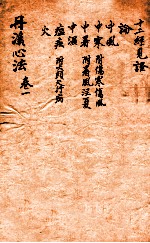 十二經見證
論
中風
中寒 附傷寒傷風
中暑 附暑風注夏
中濕
瘟疫
火
丹溪心法 卷一